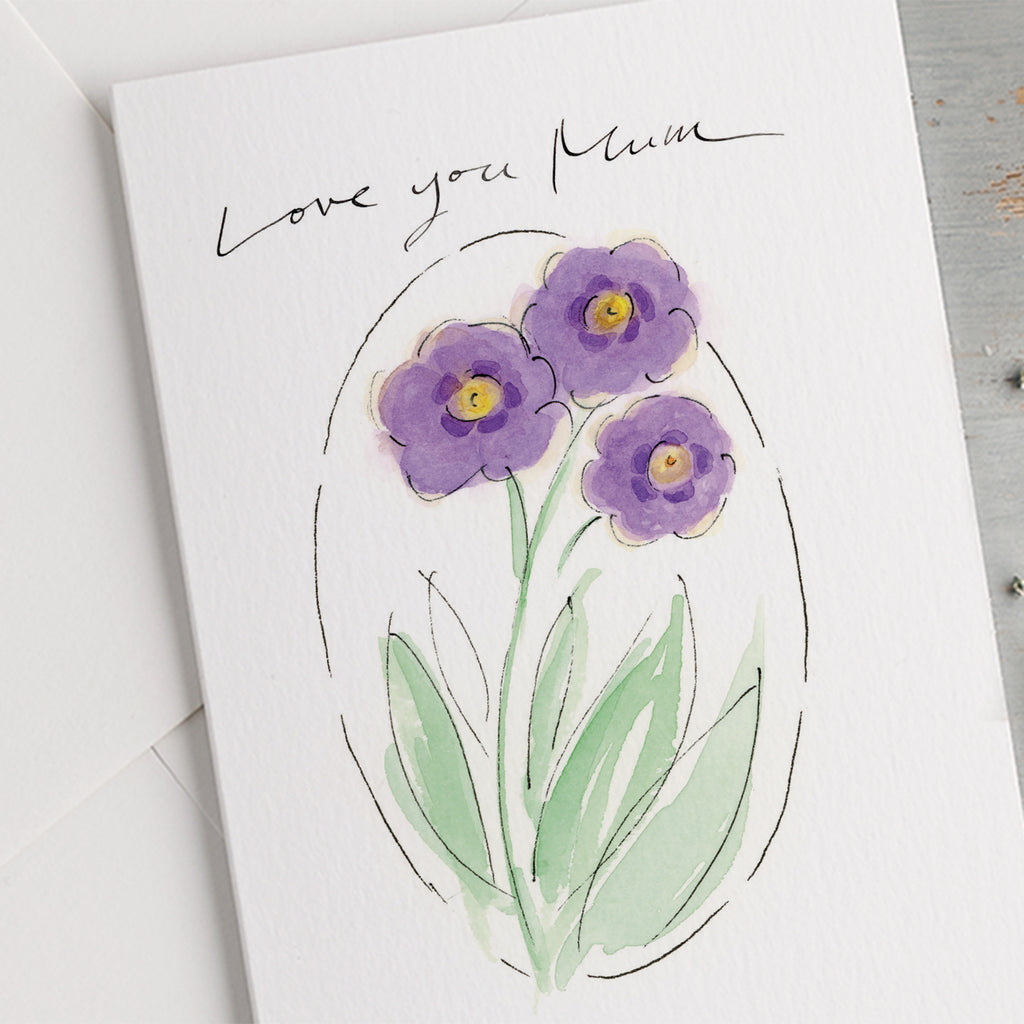 Love you Mum